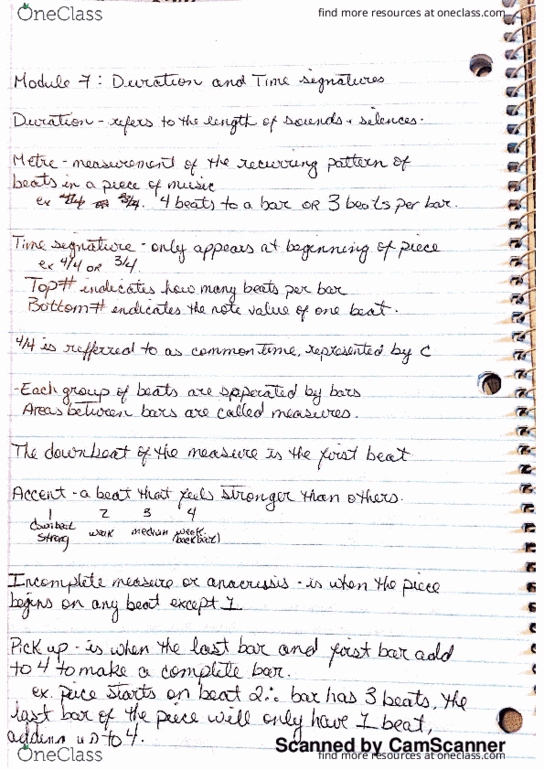 OneClass
find more resources at oneclass.com
Module 7: Duration and Time signatures
Duration - refers to the length of sounds + silences.
Metre - measurement of the recurring pattern of
beats in a piece of music
ex 4/4 or 3/4. 4 beats to a bar OR 3 beats per bar.
Time signature - only appears at beginning of piece
ex 4/4 or 3/4.
Top # indicates how many beats per bar
Bottom # indicates the note value of one beat.
4/4 is refferred to as common time, represented by C
-Each group of beats are sepperated by bars
Areas between bars are called measures.
The downbeat of the measure is the first beat
Accent - a beat that feels stronger than others.
1 2 3 4
downbeat weak medium weak
strong (backbeat)
Incomplete measure or anacrusis - is when the piece
begins on any beat except 1
Pick up - is when the last bar and first bar add
to 4 to make a complete bar.
ex. piece starts on beat 2 ∴ bar has 3 beats, the
last bar of the piece will only have 1 beat,
adding up to 4.
Scanned by CamScanner
OneClass
find more resources at oneclass.com